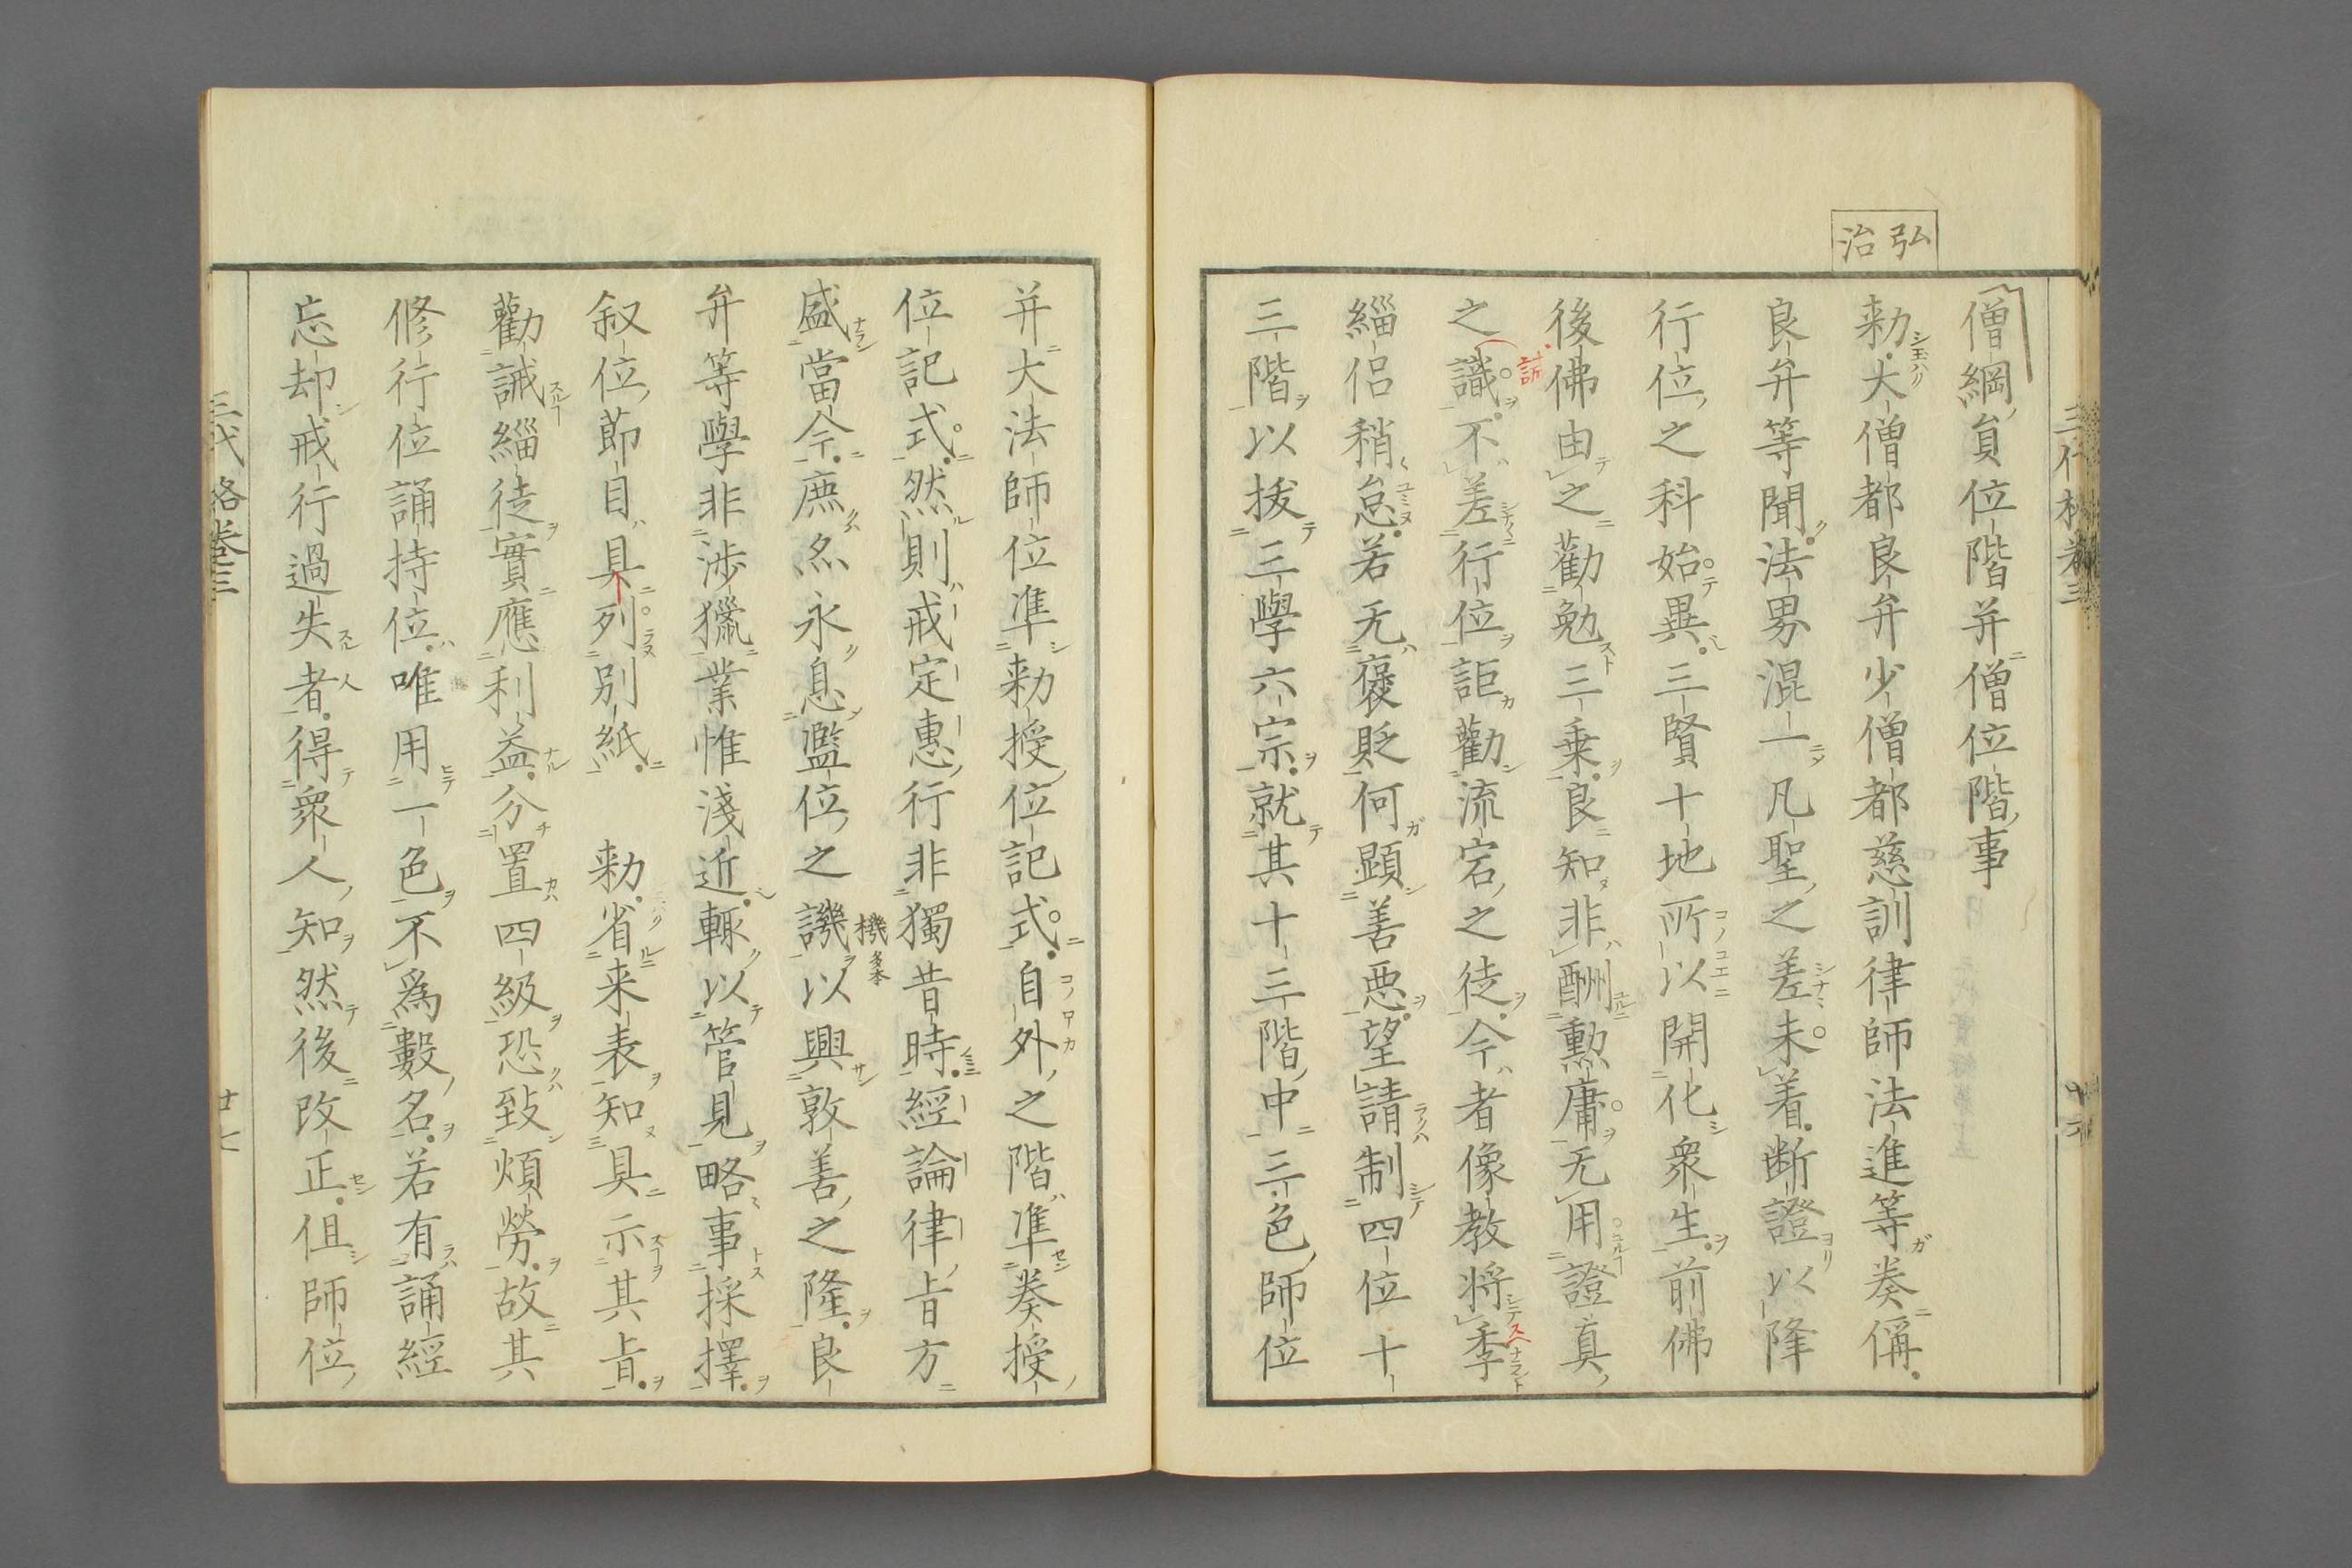 弘治
僧綱員位階并僧位階事
勅大僧都良弁少僧都慈訓律師法進等奏偁
良弁等聞法界混一凡聖之差未着断證以降
行位之科始異三賢十地所以開化衆生前佛
後佛由之勸勉三乗良知非酬勲庸无用證真
之識不差行位詎勸流宕之徒今者像教将季
緇侶稍怠若无褒貶何顕善悪望請制四位十
三階以抜三學六宗就其十三階中三色師位
并大法師位準勅授位記式自外之階準奏授
位記式然則戒定惠行非獨昔時經論律旨方
盛當今庶亦永息濫位之譏以興敦善之隆良
機 多本
弁等學非渉獵業惟淺近輒以管見略事採擇
叙位節目具列別紙 勅省来表知具示其旨
勸誡緇徒實應利益分置四級恐致煩勞故其
修行位誦持位唯用一色不為數名若有誦經
忘却戒行過失者得衆人知然後改正但師位
三代格卷三